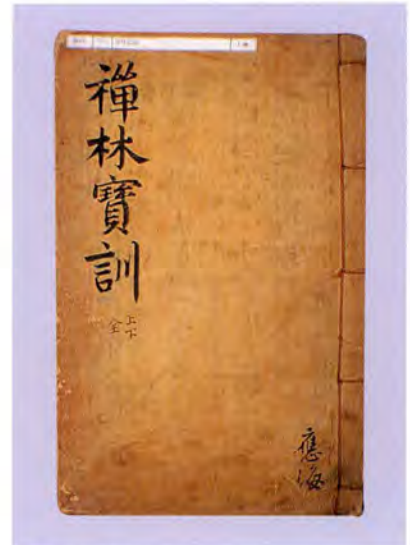 禪林寶訓
上下
全
應海